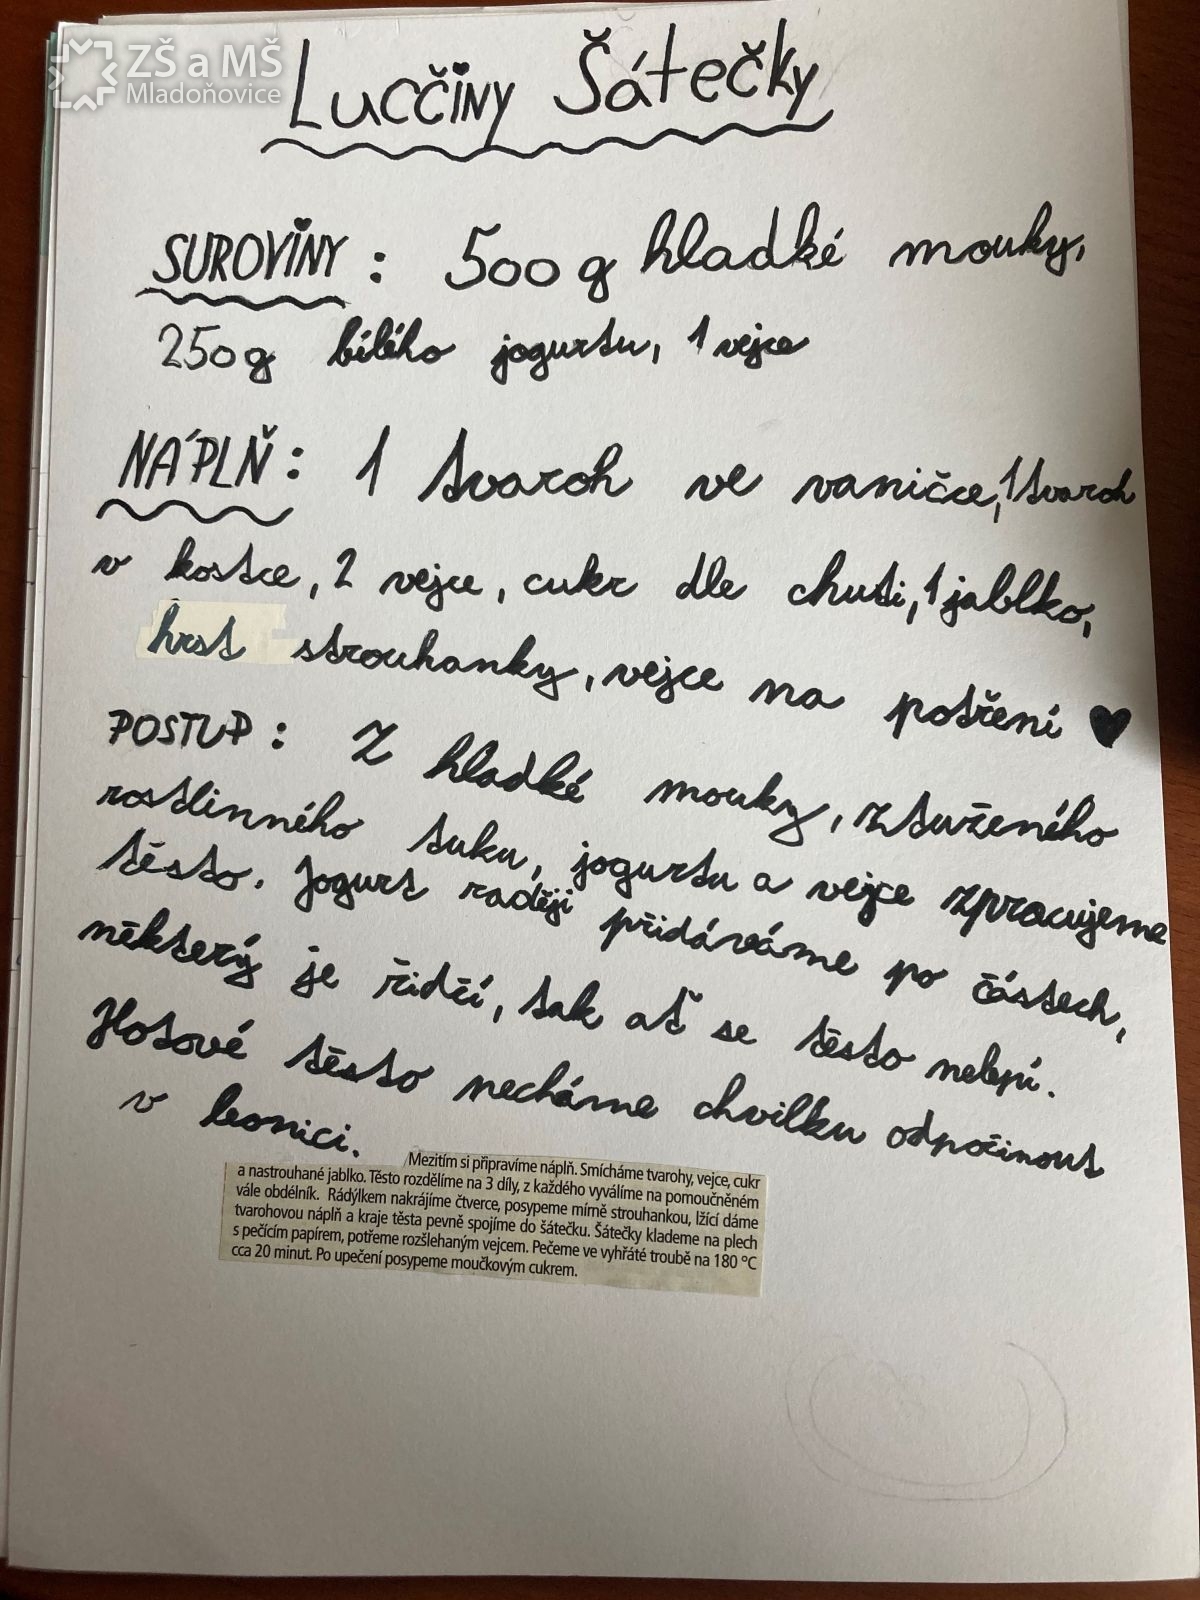 ZŠ a MŠ
Mladoňovice
Lucčiny Šátečky
SUROVINY: 500g hladké mouky,
250g bílého jogurtu, 1 vejce
NÁPLŇ: 1 tvaroh ve vaničce, 1 tvaroh
v kostce, 2 vejce, cukr dle chuti, 1 jablko,
hrst strouhanky, vejce na potření ♥
POSTUP: Z hladké mouky, ztuženého
rostlinného tuku, jogurtu a vejce zpracujeme
těsto. Jogurt raději přidáváme po částech,
některý je řidčí, tak ať se těsto nelepí.
Hotové těsto necháme chvilku odpočinout
v lednici.
Mezitím si připravíme náplň. Smícháme tvarohy, vejce, cukr
a nastrouhané jablko. Těsto rozdělíme na 3 díly, z každého vyválíme na pomoučněném
vále obdélník. Rádýlkem nakrájíme čtverce, posypeme mírně strouhankou, lžící dáme
tvarohovou náplň a kraje těsta pevně spojíme do šátečku. Šátečky klademe na plech
s pečícím papírem, potřeme rozšlehaným vejcem. Pečeme ve vyhřáté troubě na 180 °C
cca 20 minut. Po upečení posypeme moučkovým cukrem.